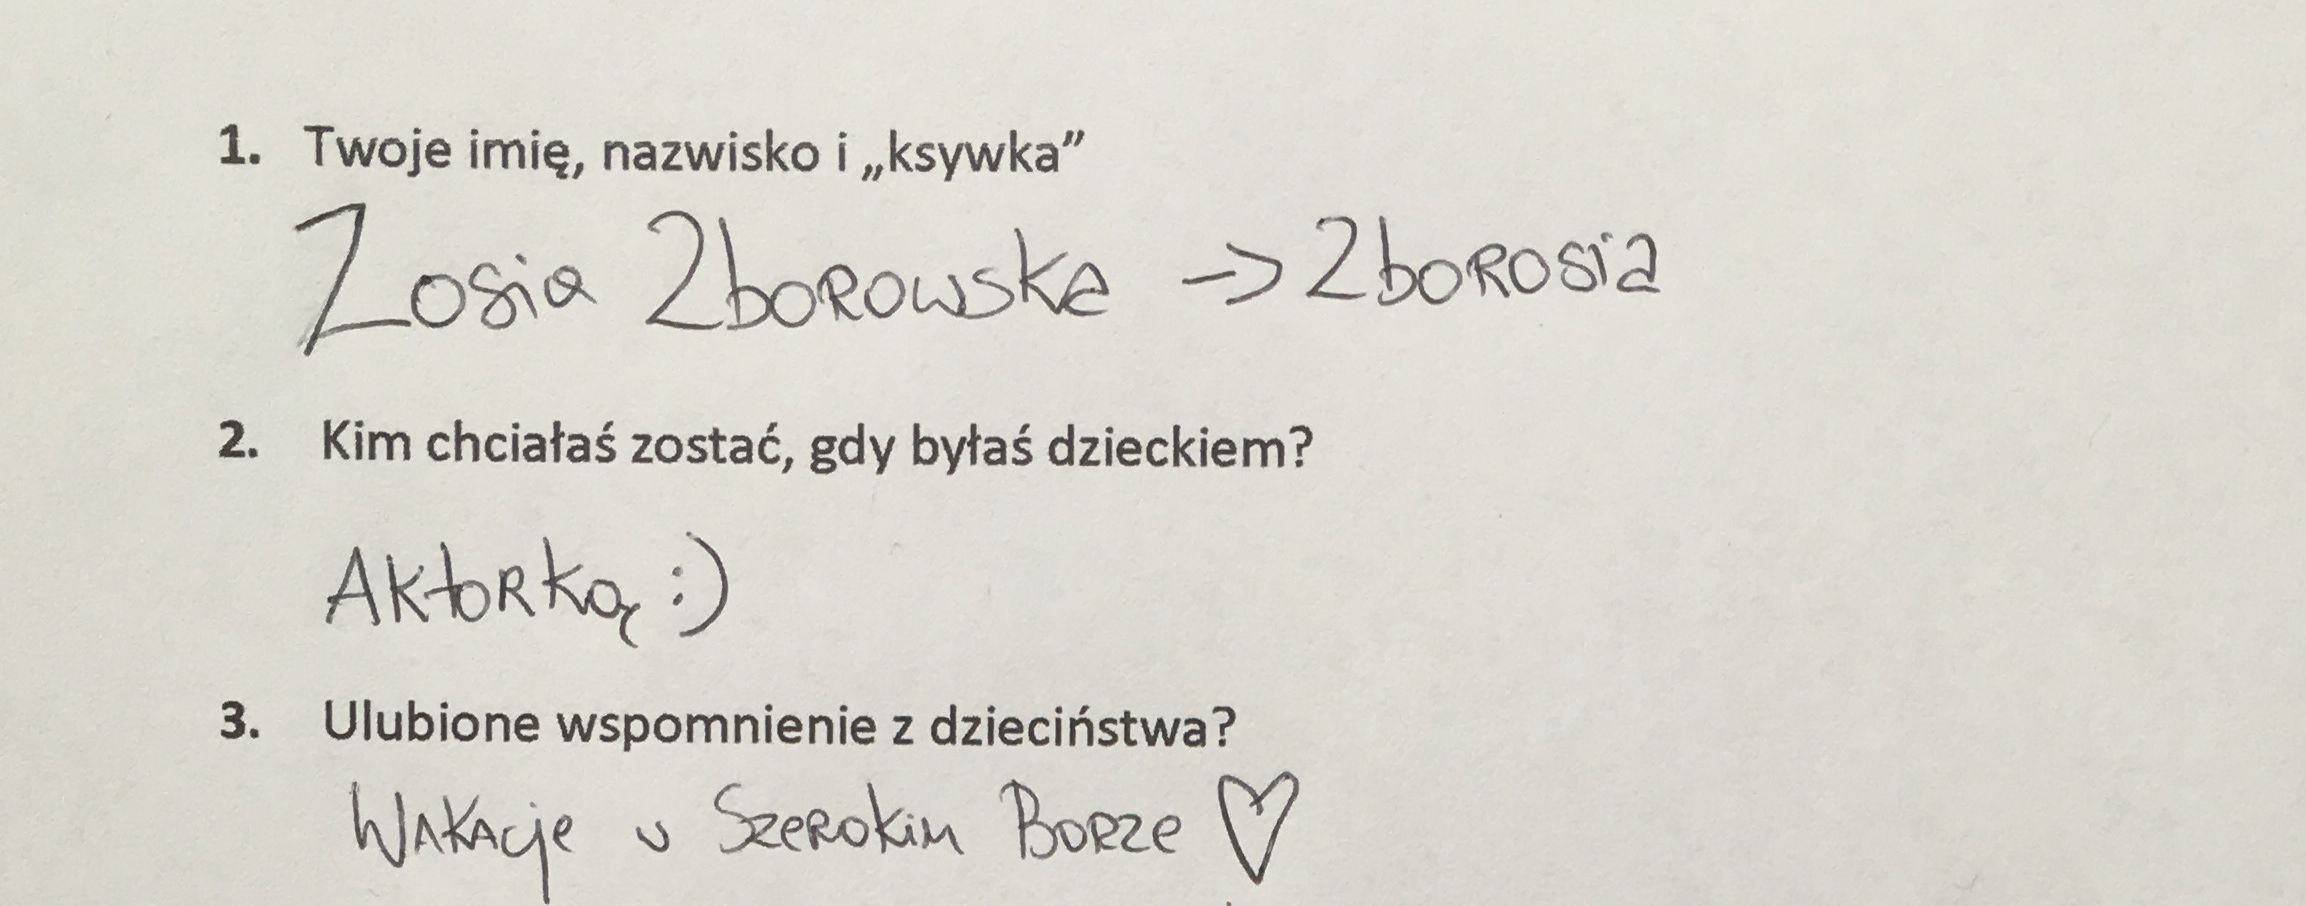 1. Twoje imię, nazwisko i „ksywka”
Zosia Zborowska -> Zborosia
2. Kim chciałaś zostać, gdy byłaś dzieckiem?
Aktorką :)
3. Ulubione wspomnienie z dzieciństwa?
Wakacje w Szerokim Borze ♡